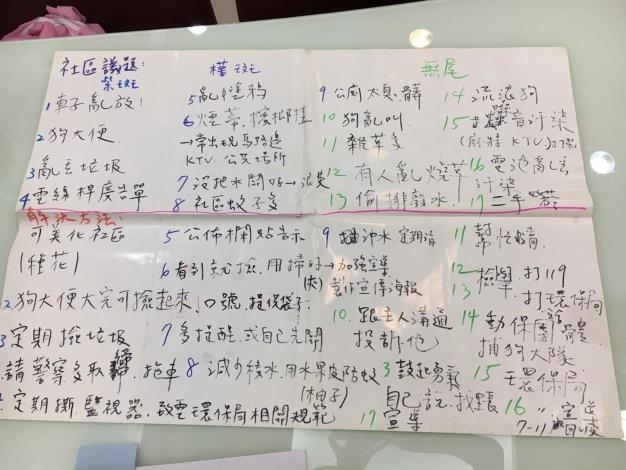 社區議題:
紫斑
1 車子亂放
2 狗大便
3 亂丟垃圾
4 電線桿廣告單
樺斑
5 亂塗鴉
6 煙蒂、檳榔渣
→常出現馬路邊
KTV、公共場所
7 沒把水關好→浪費
8 社區蚊子多
無尾
9 公廁太臭、髒
10 狗亂叫
11 雜草多
12 有人亂燒草
13 偷排廢水
14 流浪狗
15 噪音汙染
(麻將、KTV)
16 電池亂丟
汙染
17 二手菸
解決方法:
可美化社區
(種花)
2 狗大便大完可撿起來、口號、提供袋子
3 定期撿垃圾
請警察多取締、拖車
定期撕、監視器、致電環保局相關規範
5 公佈欄貼告示
6 看到就撿、用掃的→加強宣導
製作宣傳海報
7 多提醒、或自己先關
8 減少積水、用水果皮防蚊
(柚子)
9 沖水、定期清
10 跟主人溝通
投訴他
3 鼓起勇氣
自己說、找
17 宣導
11 幫忙清
12 檢舉、打119
13 打環保局
14 動保團體
捕狗大隊
15 環保局
16 〃
7-11